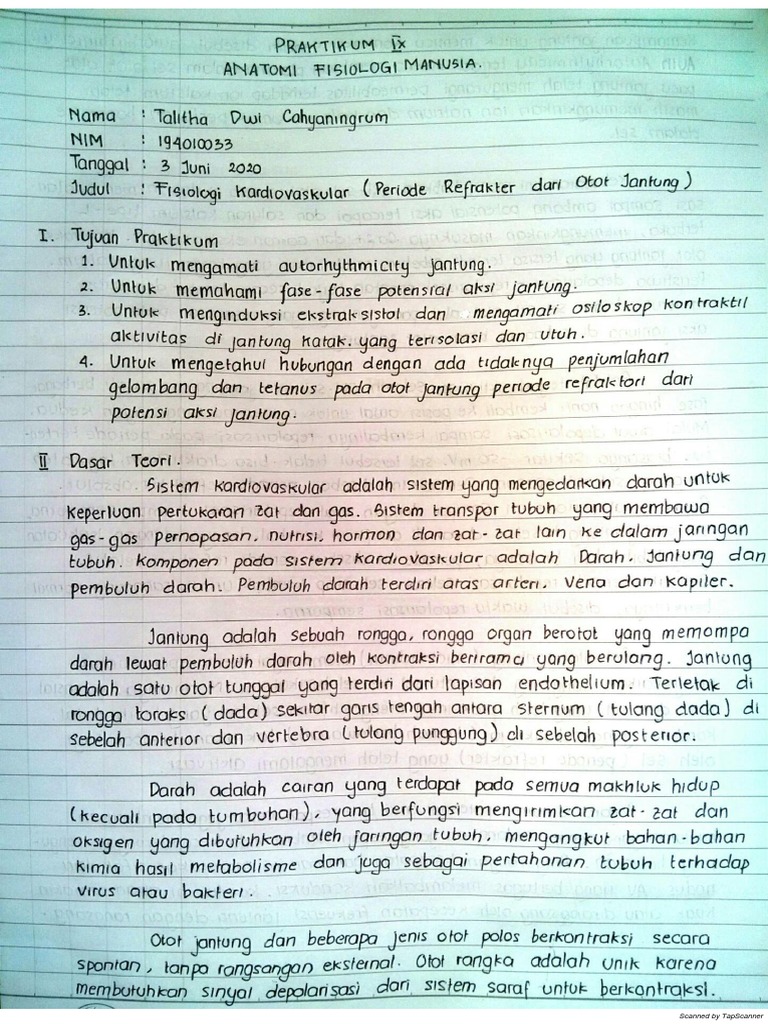 PRAKTIKUM IX
ANATOMI FISIOLOGI MANUSIA.
Nama : Talitha Dwi Cahyaningrum
NIM : 194010033
Tanggal : 3 Juni 2020
Judul : Fisiologi Kardiovaskular (Periode Refrakter dari Otot Jantung)
I. Tujuan Praktikum
1. Untuk mengamati autorhythmicity jantung.
2. Untuk memahami fase-fase potensial aksi jantung.
3. Untuk menginduksi ekstraksistol dan mengamati osiloskop kontraktil
aktivitas di jantung katak. yang terisolasi dan utuh.
4. Untuk mengetahui hubungan dengan ada tidaknya penjumlahan
gelombang dan tetanus pada otot jantung periode refraktori dari
potensi aksi jantung.
II Dasar Teori.
Sistem kardiovaskular adalah sistem yang mengedarkan darah untuk
keperluan pertukaran zat dan gas. Sistem transpor tubuh yang membawa
gas-gas pernapasan, nutrisi, hormon dan zat-zat lain ke dalam jaringan
tubuh. Komponen pada sistem kardiovaskular adalah Darah. Jantung dan
pembuluh darah. Pembuluh darah terdiri atas arteri, Vena dan kapiler.
Jantung adalah sebuah rongga, rongga organ berotot yang memompa
darah lewat pembuluh darah oleh kontraksi berirama yang berulang. Jantung
adalah satu otot tunggal yang terdiri dari lapisan endothelium. Terletak di
rongga toraks (dada) sekitar garis tengah antara sternum (tulang dada) di
sebelah anterior dan vertebra (tulang punggung) di sebelah posterior.
Darah adalah cairan yang terdapat pada semua makhluk hidup
(kecuali pada tumbuhan), yang berfungsi mengirimkan zat-zat dan
oksigen yang dibutuhkan oleh jaringan tubuh, mengangkut bahan-bahan
kimia hasil metabolisme dan juga sebagai pertahanan tubuh terhadap
virus atau bakteri.
Otot jantung dan beberapa jenis otot polos berkontraksi secara
spontan, tanpa rangsangan eksternal. Otot rangka adalah unik karena
membutuhkan sinyal depolarisasi dari sistem saraf untuk berkontraksi.
Scanned by TapScanner